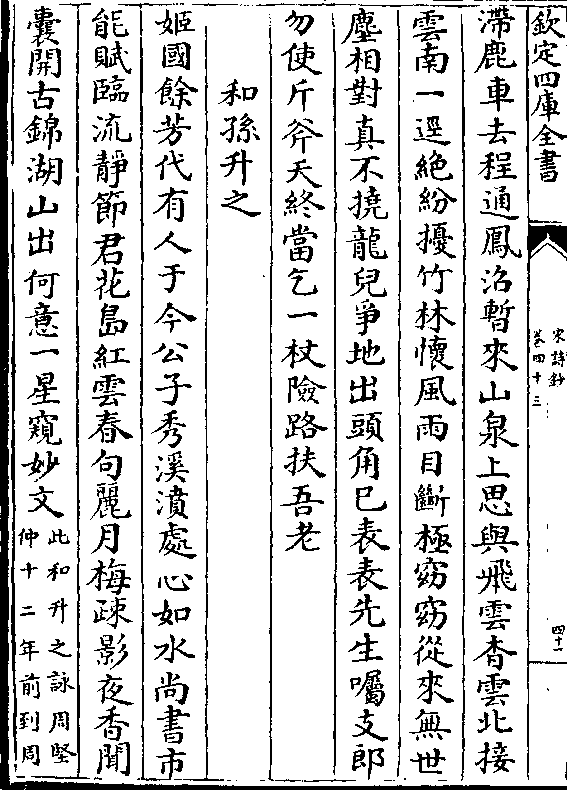 欽定四庫全書
宋詩鈔
卷四十三
四十一
滯鹿車去程通鳳沼暫來山泉上思與飛雲杳雲北接
雲南一逕絶紛擾竹林懷風雨目斷極窈窈從來無世
塵相對真不撓龍兒爭地出頭角巳表表先生囑支郎
勿使斤斧夭終當乞一杖險路扶吾老
和孫升之
姬國餘芳代有人于今公子秀溪濆處心如水尚書市
能賦臨流靜節君花島紅雲春句麗月梅疎影夜香聞
囊開古錦湖山出何意一星窺妙文
此和升之詠周堅
仲十二年前到周